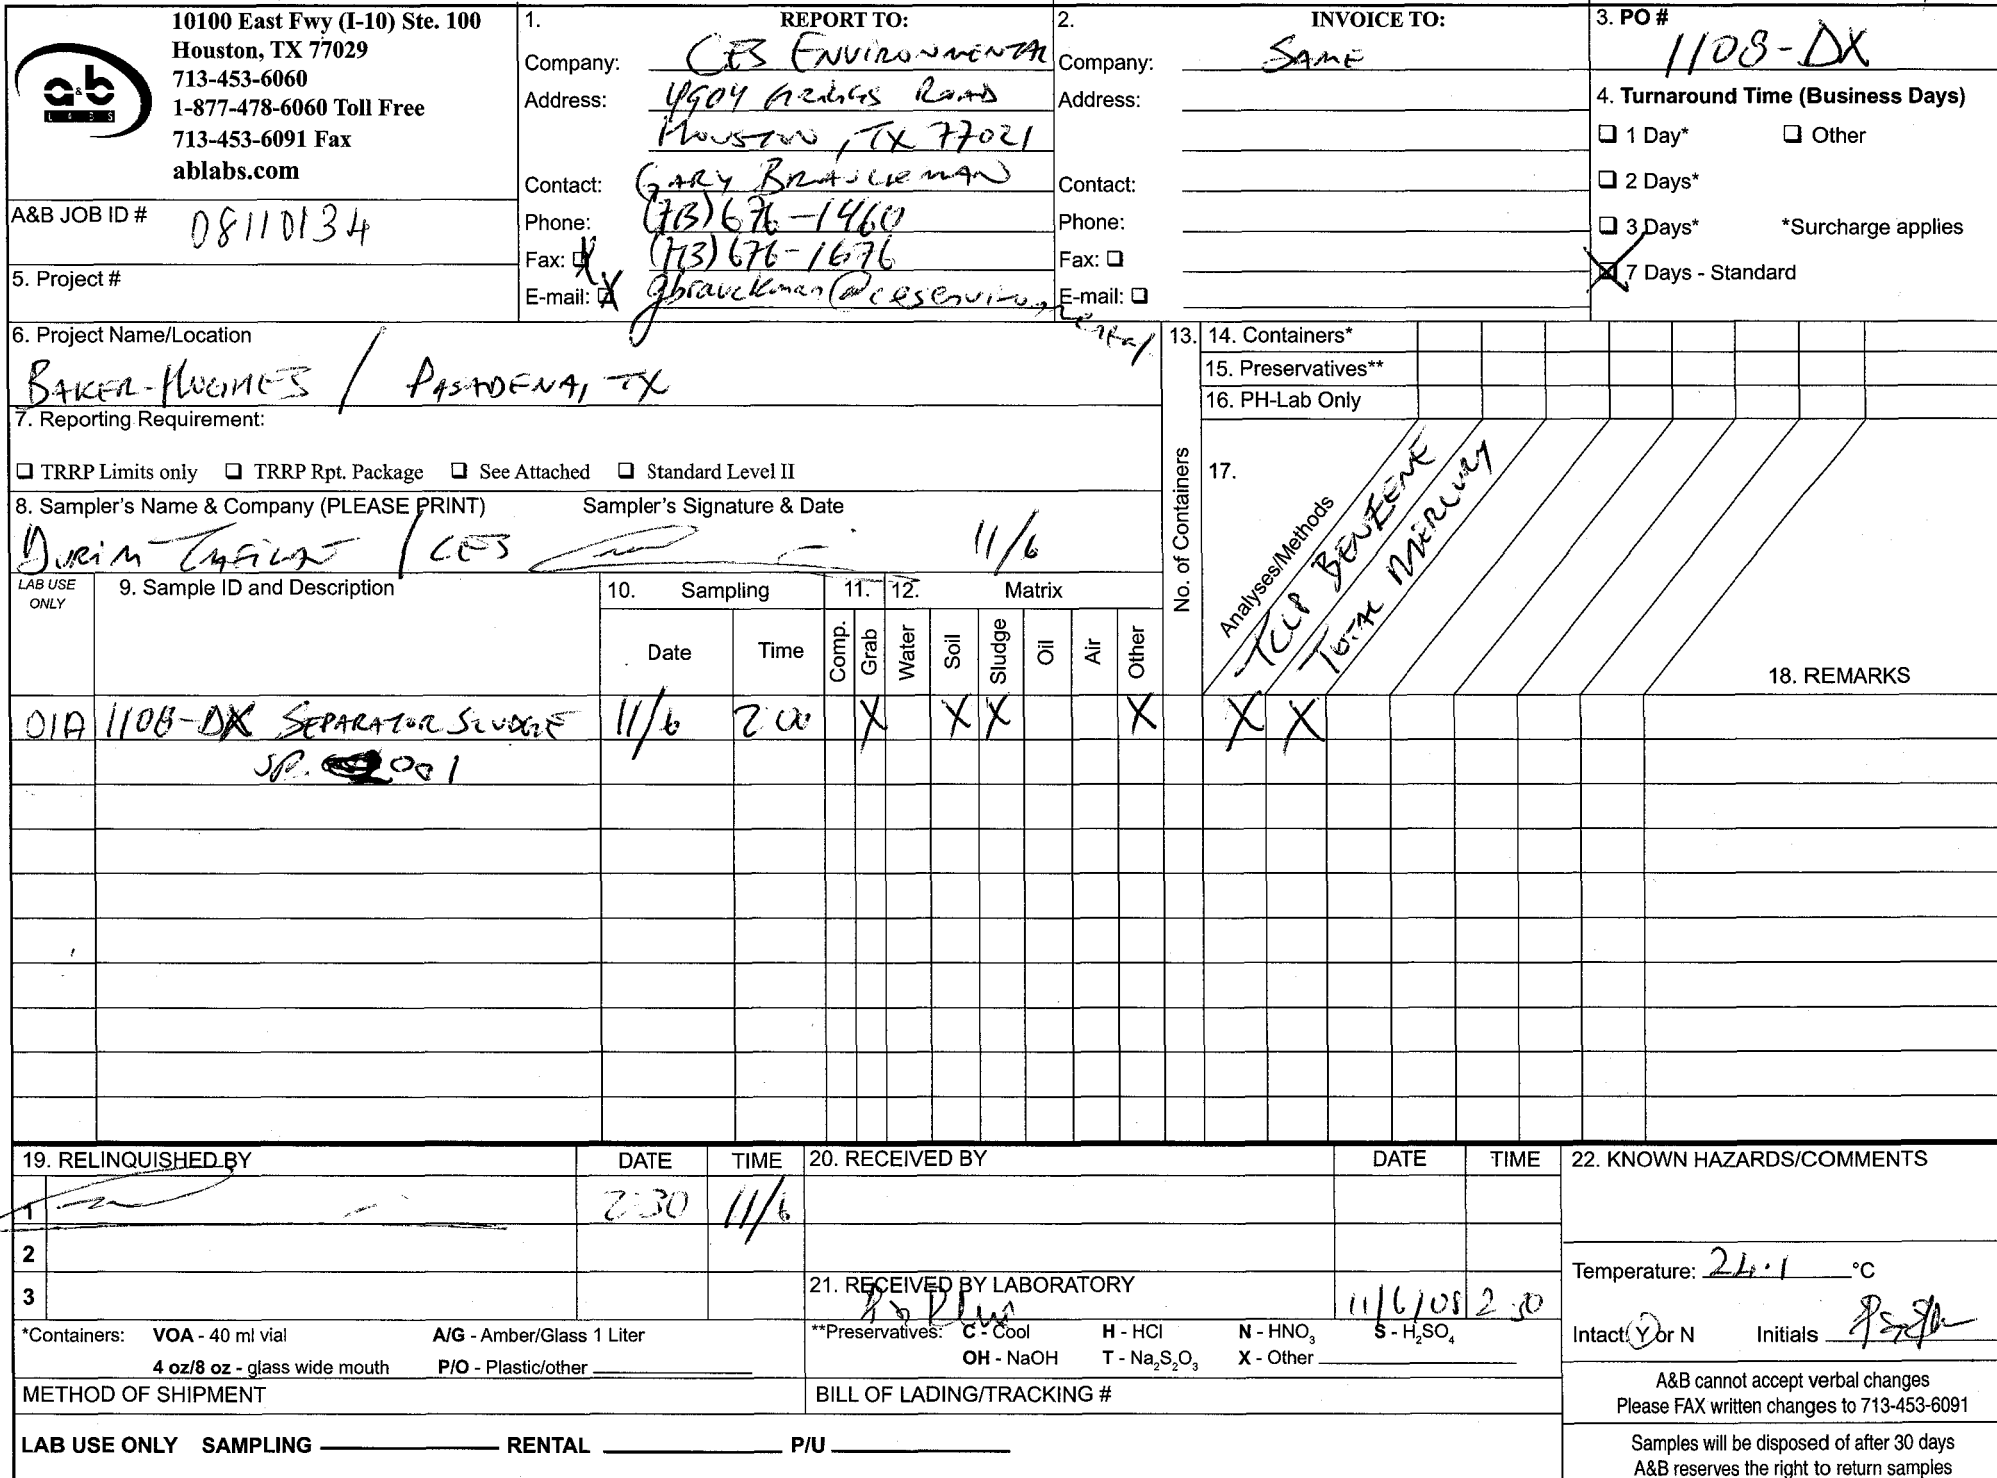 10100 East Fwy (I-10) Ste. 100
Houston, TX 77029
713-453-6060
1-877-478-6060 Toll Free
713-453-6091 Fax
ablabs.com
a&b
LABS
A&B JOB ID # 08110134
5. Project #
1. REPORT TO:
Company: CES ENVIRONMENTAL
Address: 4904 GRIGGS ROAD
HOUSTON, TX 77021
Contact: GARY BRAUCKMAN
Phone: (713) 676-1460
Fax: X (713) 676-1676
E-mail: X gbrauckman@cesenvironmental
2. INVOICE TO:
Company: SAME
Address:
Contact:
Phone:
Fax: ❏
E-mail: ❏
3. PO #
1108-DX
4. Turnaround Time (Business Days)
❏ 1 Day* ❏ Other
❏ 2 Days*
❏ 3 Days* *Surcharge applies
X 7 Days - Standard
6. Project Name/Location
BAKER-HUGHES / PASADENA, TX
7. Reporting Requirement:
❏ TRRP Limits only ❏ TRRP Rpt. Package ❏ See Attached ❏ Standard Level II
8. Sampler's Name & Company (PLEASE PRINT) Sampler's Signature & Date
/ CES 11/6
13.
No. of Containers
14. Containers*
15. Preservatives**
16. PH-Lab Only
17.
Analyses/Methods
TCLP BENZENE
TOTAL MERCURY
18. REMARKS
LAB USE
ONLY
9. Sample ID and Description
10. Sampling
Date Time
11.
Comp. Grab
12. Matrix
Water Soil Sludge Oil Air Other
01A 1108-DX SEPARATOR SLUDGE 11/6 2:00 X X X X X X
SP. 001
19. RELINQUISHED BY DATE TIME
1 2:30 11/6
2
3
20. RECEIVED BY DATE TIME
21. RECEIVED BY LABORATORY
11/6/08 2:30
22. KNOWN HAZARDS/COMMENTS
Temperature: 24.1 °C
Intact Y or N Initials
*Containers: VOA - 40 ml vial A/G - Amber/Glass 1 Liter
4 oz/8 oz - glass wide mouth P/O - Plastic/other
**Preservatives: C - Cool H - HCl N - HNO3 S - H2SO4
OH - NaOH T - Na2S2O3 X - Other
METHOD OF SHIPMENT
BILL OF LADING/TRACKING #
A&B cannot accept verbal changes
Please FAX written changes to 713-453-6091
LAB USE ONLY SAMPLING RENTAL P/U
Samples will be disposed of after 30 days
A&B reserves the right to return samples